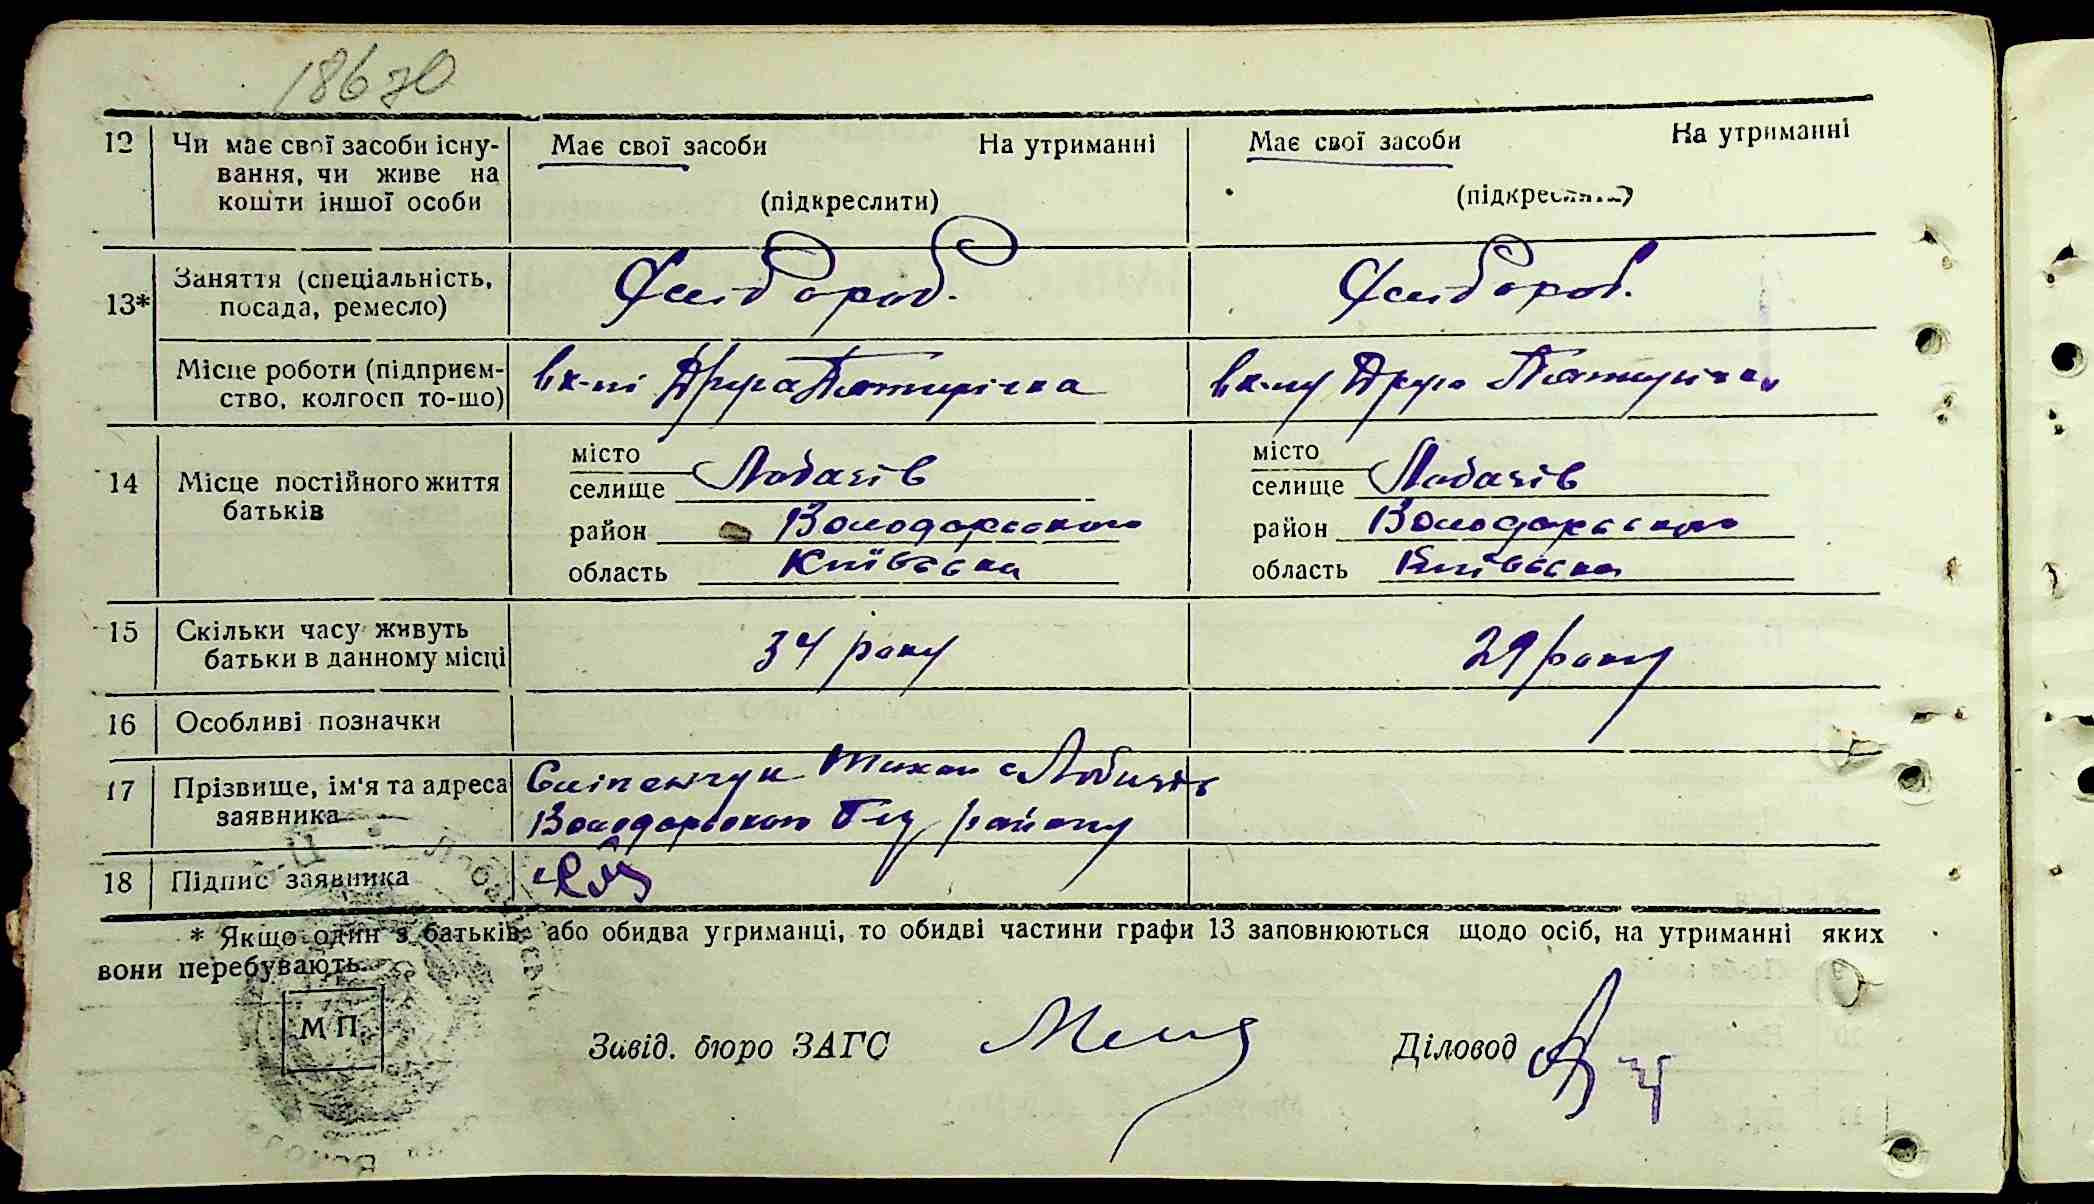 18670
12 Чи має свої засоби існу- Має свої засоби На утриманні Має свої засоби На утриманні
вання, чи живе на
кошти іншої особи (підкреслити) (підкреслити)
13* Заняття (спеціальність,
посада, ремесло)
Місце роботи (підприєм- в к-пі Друга Пятирічка в к-пу Друга Пятирічка
ство, колгосп то-що)
14 Місце постійного життя батьків місто селище Лобачів місто селище Лобачів
район Володарського район Володарського
область Київська область Київська
15 Скільки часу живуть 34 року 29 року
батьки в данному місці
16 Особливі позначки
17 Прізвище, ім'я та адреса Сліпенчук Тихон с Лобачів
заявника Володарського району
18 Підпис заявника
* Якщо один з батьків або обидва утриманці, то обидві частини графи 13 заповнюються щодо осіб, на утриманні яких
вони перебувають.
М П.
Завід. бюро ЗАГС Діловод